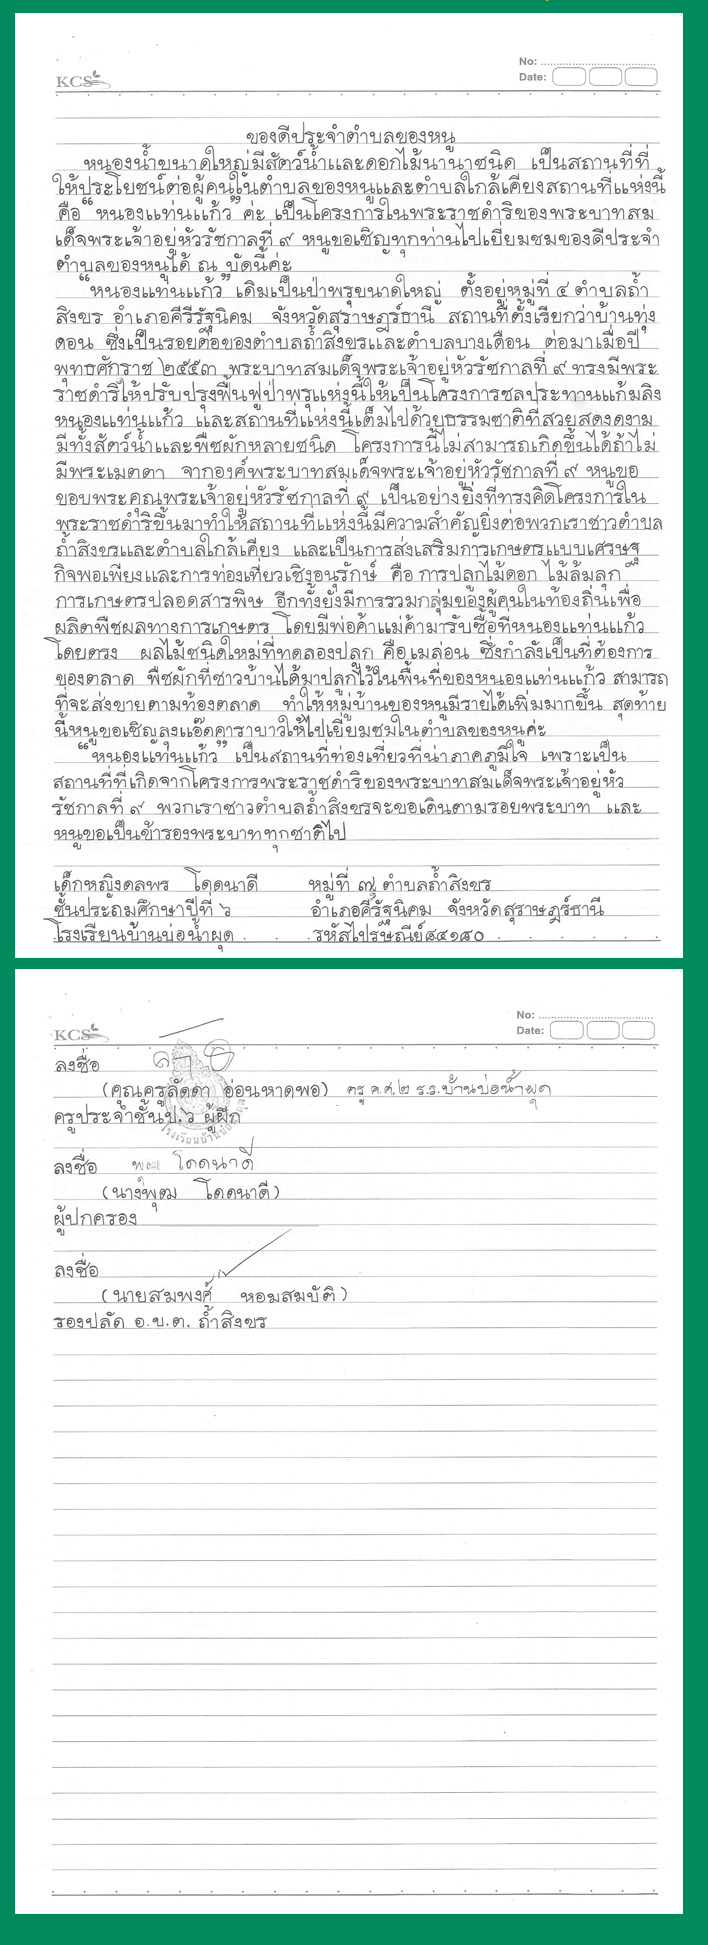 KCS
No:
Date:
ของดีประจำตำบลของหนู
หนองน้ำขนาดใหญ่มีสัตว์น้ำและดอกไม้นานาชนิด เป็นสถานที่ที่
ให้ประโยชน์ต่อผู้คนในตำบลของหนูและตำบลใกล้เคียงสถานที่แห่งนี้
คือ “หนองแท่นแก้ว” ค่ะ เป็นโครงการในพระราชดำริของพระบาทสม
เด็จพระเจ้าอยู่หัวรัชกาลที่ ๙ หนูขอเชิญทุกท่านไปเยี่ยมชมของดีประจำ
ตำบลของหนูได้ ณ บัดนี้ค่ะ
“หนองแท่นแก้ว” เดิมเป็นป่าพรุขนาดใหญ่ ตั้งอยู่หมู่ที่ ๔ ตำบลถ้ำ
สิงขร อำเภอคีรีรัฐนิคม จังหวัดสุราษฎร์ธานี สถานที่ตั้งเรียกว่าบ้านทุ่ง
ดอน ซึ่งเป็นรอยต่อของตำบลถ้ำสิงขรและตำบลบางเดือน ต่อมาเมื่อปี
พุทธศักราช ๒๕๕๓ พระบาทสมเด็จพระเจ้าอยู่หัวรัชกาลที่ ๙ ทรงมีพระ
ราชดำริให้ปรับปรุงฟื้นฟูป่าพรุแห่งนี้ให้เป็นโครงการชลประทานแก้มลิง
หนองแท่นแก้ว และสถานที่แห่งนี้เต็มไปด้วยธรรมชาติที่สวยสดงดงาม
มีทั้งสัตว์น้ำและพืชผักหลายชนิด โครงการนี้ไม่สามารถเกิดขึ้นได้ถ้าไม่
มีพระเมตตา จากองค์พระบาทสมเด็จพระเจ้าอยู่หัวรัชกาลที่ ๙ หนูขอ
ขอบพระคุณพระเจ้าอยู่หัวรัชกาลที่ ๙ เป็นอย่างยิ่งที่ทรงคิดโครงการใน
พระราชดำริขึ้นมาทำให้สถานที่แห่งนี้มีความสำคัญยิ่งต่อพวกเราชาวตำบล
ถ้ำสิงขรและตำบลใกล้เคียง และเป็นการส่งเสริมการเกษตรแบบเศรษฐ
กิจพอเพียงและการท่องเที่ยวเชิงอนุรักษ์ คือ การปลูกไม้ดอก ไม้ล้มลุก
การเกษตรปลอดสารพิษ อีกทั้งยังมีการรวมกลุ่มของผู้คนในท้องถิ่นเพื่อ
ผลิตพืชผลทางการเกษตร โดยมีพ่อค้าแม่ค้ามารับซื้อที่หนองแท่นแก้ว
โดยตรง ผลไม้ชนิดใหม่ที่ทดลองปลูก คือ เมล่อน ซึ่งกำลังเป็นที่ต้องการ
ของตลาด พืชผักที่ชาวบ้านได้มาปลูกไว้ในพื้นที่ของหนองแท่นแก้ว สามารถ
ที่จะส่งขายตามท้องตลาด ทำให้หมู่บ้านของหนูมีรายได้เพิ่มมากขึ้น สุดท้าย
นี้หนูขอเชิญลุงแอ๊ดคาราบาวให้ไปเยี่ยมชมในตำบลของหนูค่ะ
“หนองแท่นแก้ว” เป็นสถานที่ท่องเที่ยวที่น่าภาคภูมิใจ เพราะเป็น
สถานที่ที่เกิดจากโครงการพระราชดำริของพระบาทสมเด็จพระเจ้าอยู่หัว
รัชกาลที่ ๙ พวกเราชาวตำบลถ้ำสิงขรจะขอเดินตามรอยพระบาท และ
หนูขอเป็นข้ารองพระบาททุกชาติไป
เด็กหญิงดลพร โดดนาดี หมู่ที่ ๗ ตำบลถ้ำสิงขร
ชั้นประถมศึกษาปีที่ ๖ อำเภอคีรีรัฐนิคม จังหวัดสุราษฎร์ธานี
โรงเรียนบ้านบ่อน้ำผุด รหัสไปรษณีย์๘๔๑๘๐
KCS
No:
Date:
ลงชื่อ
(คุณครูลัดดา อ่อนหาดพอ) ครู ค.ศ.๒ ร.ร.บ้านบ่อน้ำผุด
ครูประจำชั้นป.๖ ผู้ฝึก
ลงชื่อ โดดนาดี
(นางพุฒ โดดนาดี)
ผู้ปกครอง
ลงชื่อ
(นายสมพงศ์ หอมสมบัติ)
รองปลัด อ.บ.ต. ถ้ำสิงขร